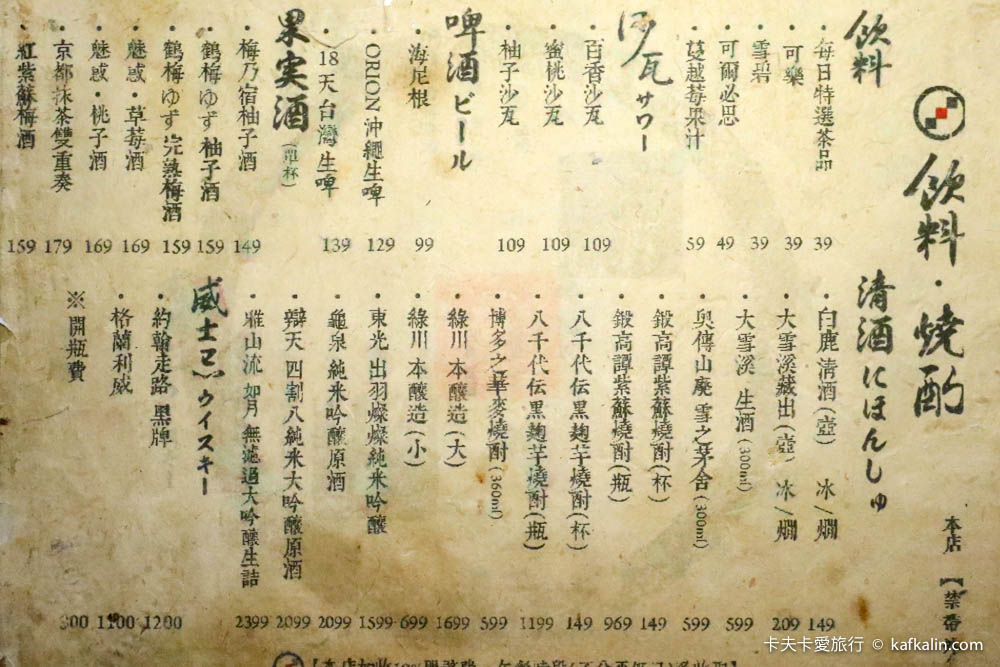 飲料・燒酌
本店 【禁帶
飲料
・每日特選茶品 39
・可樂 39
・雪碧 39
・可爾必思 49
・蔓越莓果汁 59
沙瓦 サワー
・百香沙瓦 109
・蜜桃沙瓦 109
・柚子沙瓦 109
啤酒 ビール
・海尼根 99
・ORION 沖繩生啤 129
・18天台灣生啤 139
果実酒 (單杯)
・梅乃宿柚子酒 149
・鶴梅ゆず 柚子酒 159
・鶴梅ゆず 完熟梅酒 159
・魅惑・草莓酒 169
・魅惑・桃子酒 169
・京都抹茶雙重奏 179
・紅紫蘇梅酒 159
清酒 にほんしゅ
・白鹿清酒(壺) 冰/燗 149
・大雪溪藏出(壺) 冰/燗 209
・大雪溪 生酒(300ml) 599
・奧傳山廢 雪之茅舍(300ml) 599
・鍛高譚紫蘇燒酎(杯) 149
・鍛高譚紫蘇燒酎(瓶) 969
・八千代伝黒麹芋燒酎(杯) 149
・八千代伝黒麹芋燒酎(瓶) 1199
・博多之華麥燒酎(360ml) 599
・綠川 本釀造(大) 1699
・綠川 本釀造(小) 699
・東光 出羽燦燦純米吟釀 1599
・龜泉 純米吟釀原酒 2099
・辯天 四割八純米大吟釀原酒 2099
・雅山流 如月 無濾過大吟釀生詰 2399
威士忌 ウイスキー
・約翰走路 黑牌 1200
・格蘭利威 1100
※開瓶費 300
卡夫卡愛旅行 © kafkalin.com